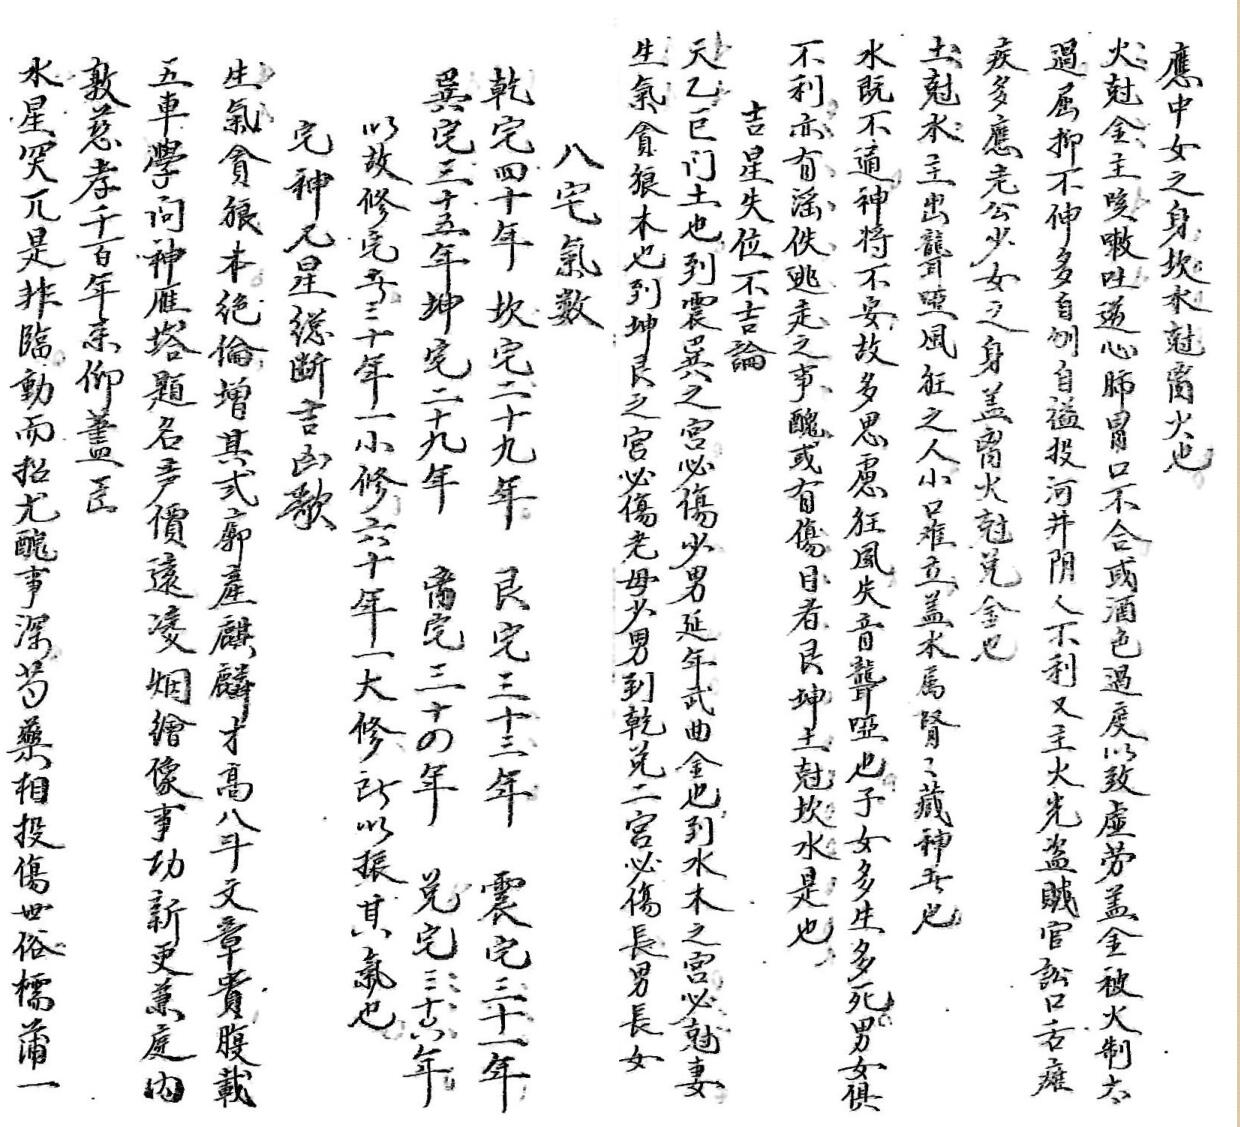 應中女之身坎水尅离火也
火尅金主咳嗽吐逆心肺胃口不合或酒色過度以致虛劳盖金被火制太
過屈抑不伸多自刎自謚投河井阴人不利又主火光盜賊官訟口舌癱
疾多應老公少女之身盖离火尅兑金也
土尅水主出聾啞風狂之人小口难立盖水爲腎〻藏神者也
水既不通神將不安故多思慮狂風失音聾啞也子女多生多死男女俱
不利亦有滛佚逃走之事醜或有傷目者艮坤土尅坎水是也
吉星失位不吉論
天乙巨门土也到震巽之宮必傷少男延年武曲金也到水木之宮必尅妻
生氣貪狼木也到坤艮之宮必傷老母少男到乾兑二宮必傷長男長女
八宅氣数
乾宅四十年 坎宅二十九年 艮宅三十三年 震宅三十一年
巽宅三十五年 坤宅二十九年 离宅三十四年 兑宅三十六年
以故修宅者三十年一小修六十年一大修所以振其氣也
宅神凡星總断吉凶歌
生氣貪狼本絕倫增其式廓產麒麟才高八斗文章貴腹載
五車學问神雁塔題名声價遠凌烟繪像事功新更兼庭内
敦慈孝千百年来仰藎臣
水星哭兀是非臨動而招尤醜事深芍藥相投傷世俗樗蒲一